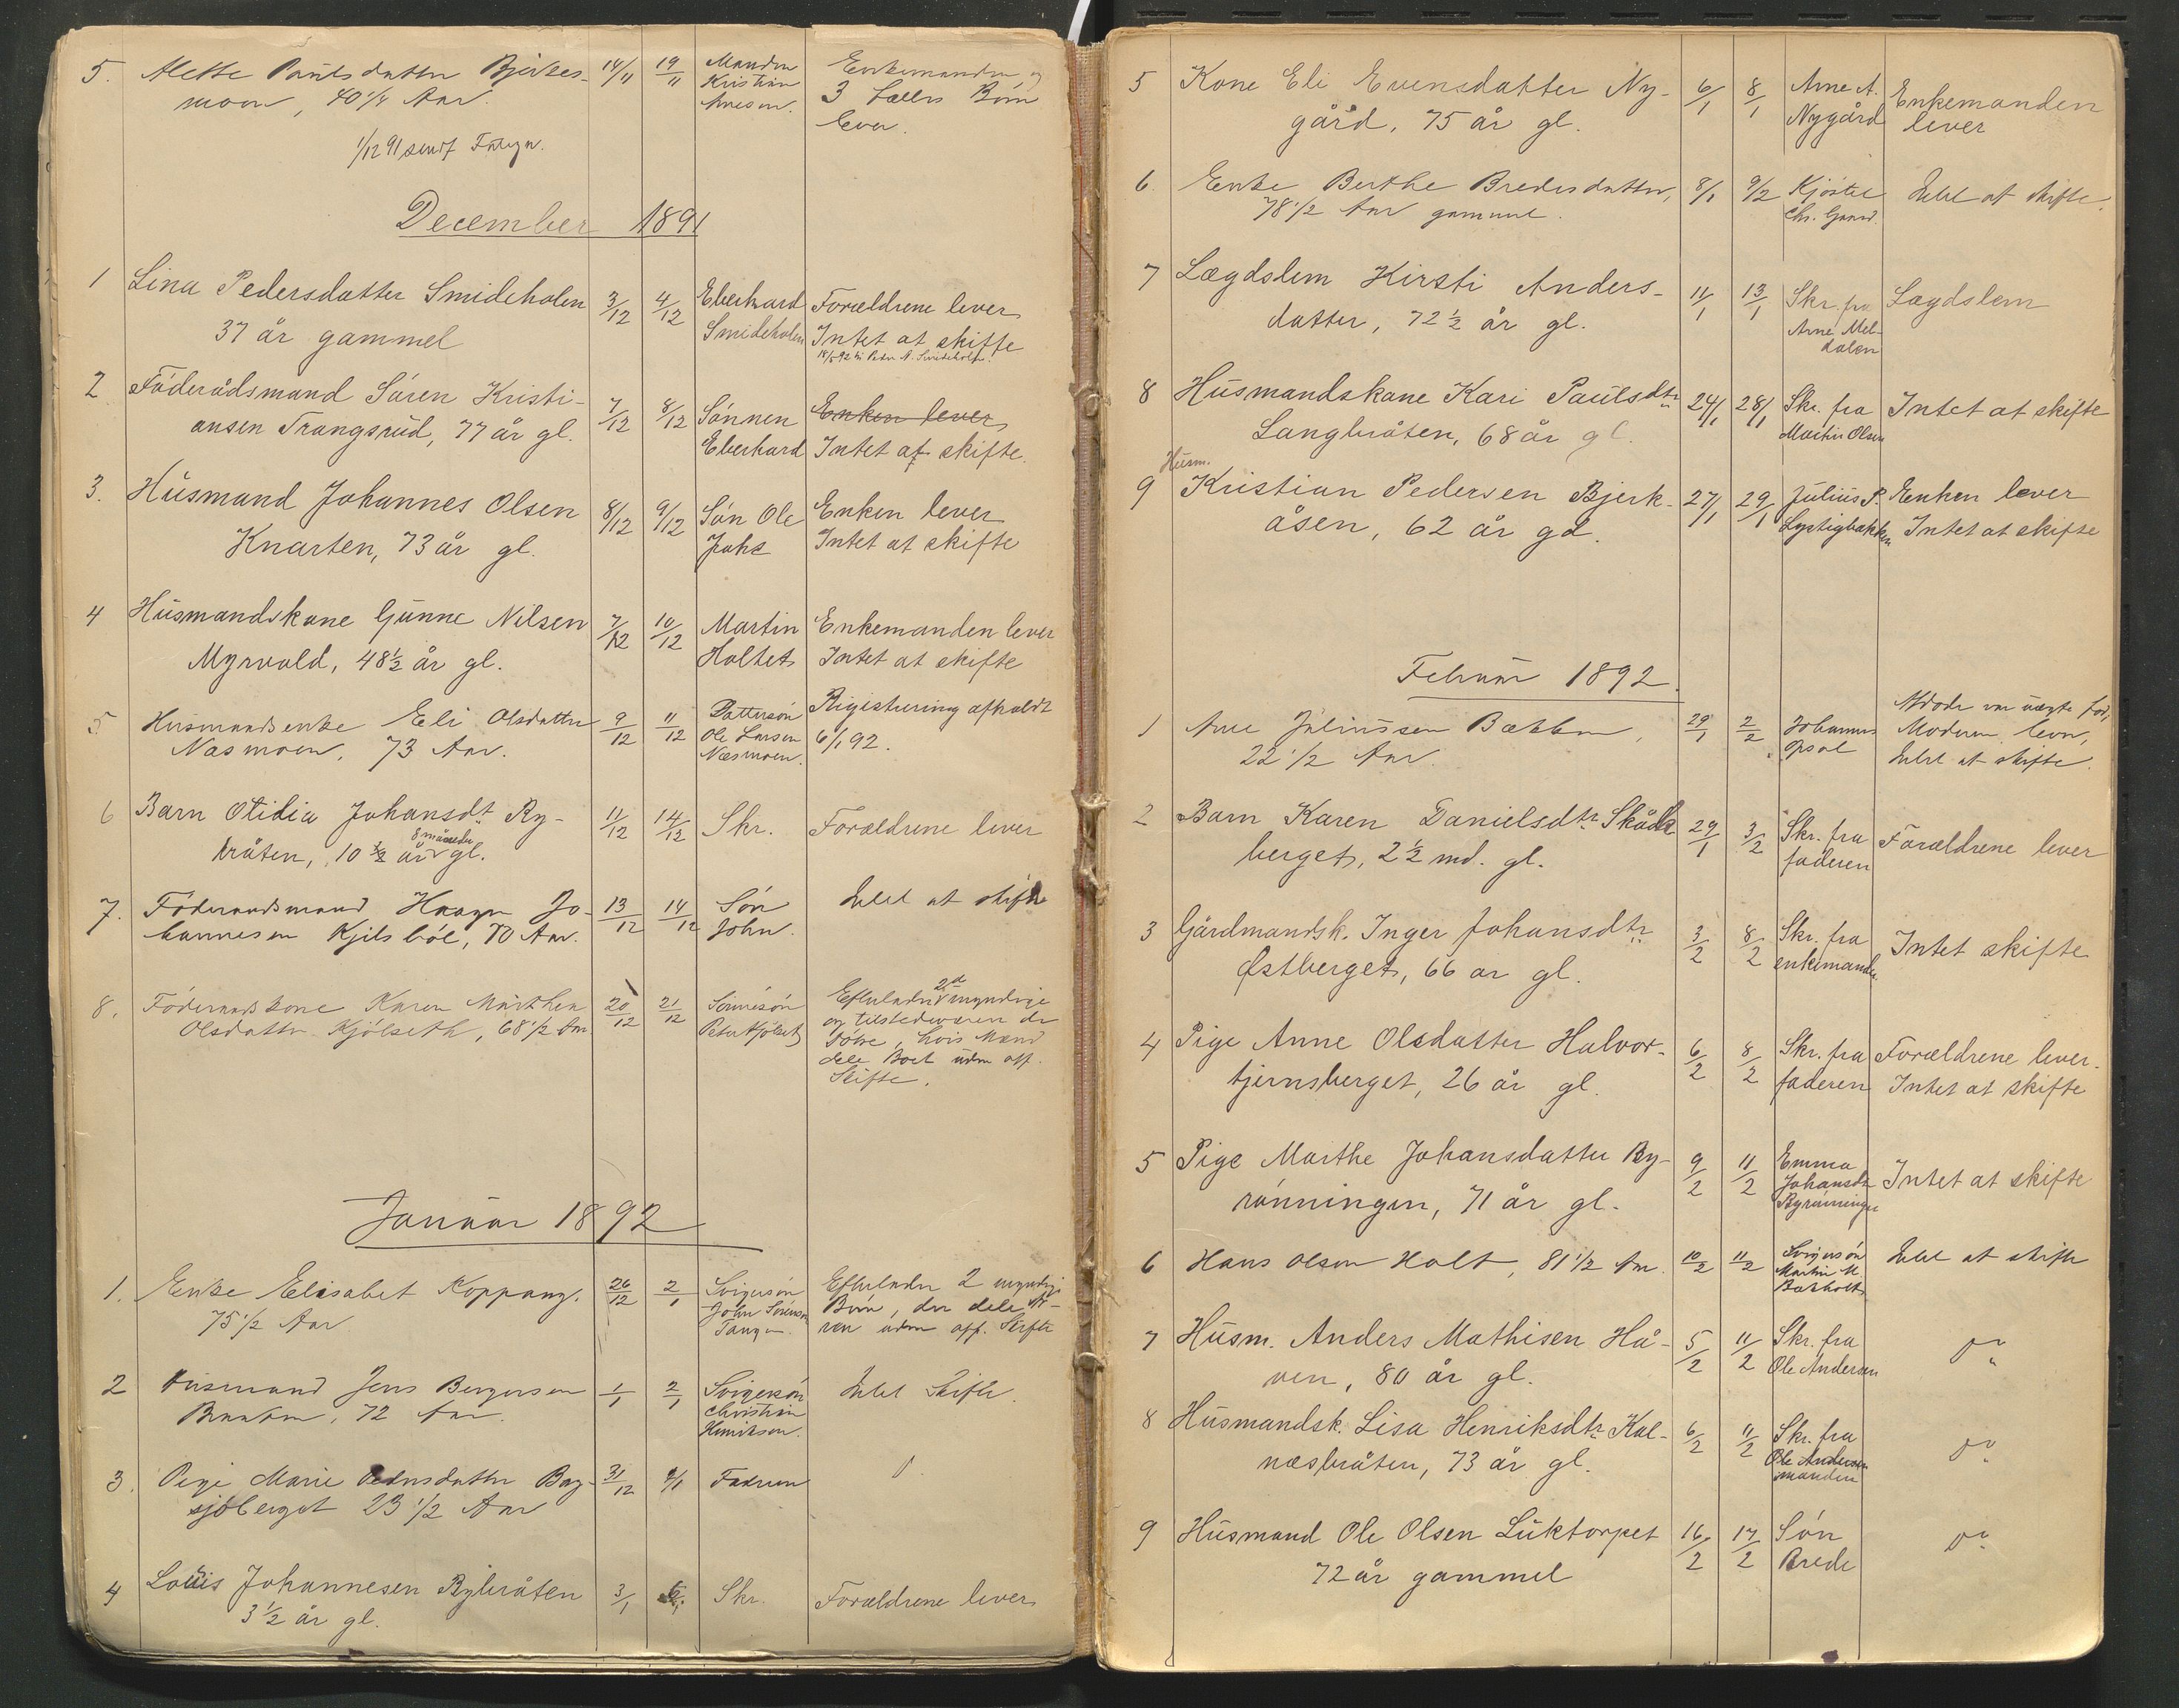 5. Mette Paulsdatter Bjerkes- 14/11 19/11 Manden Enkemanden og
moen, 40 1/4 Aar. Kristian 3 fælles Børn
Arnesen. lever.
1/12 91 sendt
December 1891
1 Lina Pedersdatter Smideholen 3/12 4/12 Eberhard Forældrene lever
37 år gammel Smideholen Intet at skifte
2 Föderådsmand Sören Kristi- 7/12 8/12 Sönnen Enken lever
ansen Trangsrud, 77 år gl. Eberhard Intet at skifte.
3. Husmand Johannes Olsen 8/12 9/12 Sön Ole Enken lever
Knarten, 73 år gl. Johs Intet at skifte
4 Husmandskone Gunne Nilsen 7/12 10/12 Martin Enkemanden lever
Myrvold, 48 1/2 år gl. Holtet Intet at skifte
5 Husmandsenke Eli Olsdatter 9/12 11/12 Dattersön Rigistrering afholdt
Næsmoen, 73 Aar. Ole Larsen 6/1 92.
Næsmoen.
6 Barn Otidia Johansdt. Ry- 11/12 14/12 Skr. Forældrene lever
8 måneder
bråten, 10 1/2 år gl.
7. Föderaadsmand Haagen Jo- 13/12 14/12 Sön Intet at skifte
hannesen Kjilsböl, 70 Aar. John.
8. Föderaadskone Karen Marthea 20/12 21/12 Sönnesön Efterlader 2de myndige
Olsdatter Kjölseth, 68 1/2 Aar Peter Kjölseth og tilstedeværende
Döttre, hvis Mænd
dele Boet uden off.
Skifte.
Januar 1892
1. Enke Elisabet Koppang. 26/12 2/1 Svigersön Efterlader 2 myndige
75 1/2 Aar John Sörensen Börn, der dele Ar-
Tangen. ven uden off. Skifte
2 Husmand Jens Bergersen 1/1 2/1 Svigersön Intet Skifte.
Braaten, 72 Aar. Christian
Henriksen.
3. Pige Marie Pedersdatter Bag- 31/12 2/1 Faderen D
sjöberget 23 1/2 Aar
4 Louis Johannesen Rybråten 3/1 Skr. Forældrene lever
3 1/2 år gl.
5 Kone Eli Evensdatter Ny- 6/1 8/1 Arne A. Enkemanden
gård, 75 år gl. Nygård lever
6. Enke Berthe Bredesdatter, 8/1 9/2 Kjöstel Intet at skifte.
78 1/2 Aar gammel. Chr. Gaard.
7 Lægdslem Kirsti Anders- 11/1 13/1 Skr. fra Lægdslem
datter, 72 1/2 år gl. Arne Mel-
dalen
8 Husmandskone Kari Paulsdtr 24/1 28/1 Skr. fra Intet at skifte
Langbråten, 68 år gl. Martin Olsen
Husm.
9 Kristian Pedersen Bjerk- 27/1 29/1 Julius P. Enken lever
åsen, 62 år gl. Lystigbakken Intet at skifte
Februar 1892.
1 Arne Juliussen Bakken, 29/1 2/2 Johannes Afdöde var uægte föd,
22 1/2 Aar. Opsal Moderen lever,
Intet at skifte.
2 Barn Karen Danielsdtr. Skåd 29/1 3/2 Skr. fra Forældrene lever
berget, 2 1/2 md. gl. faderen
3 Gårdmandsk. Inger Johansdtr 3/2 8/2 Skr. fra Intet skifte
Østberget, 66 ar gl. enkemanden
4 Pige Anne Olsdatter Halvor- 6/2 8/2 Skr. fra Forældrene lever.
tjernsberget, 26 år gl. faderen Intet at skifte
5 Pige Marthe Johansdatter By- 9/2 11/2 Emma Intet at skifte
rönningen, 71 år gl. Johansdtr
Byrönningen
6 Hans Olsen Holt, 81 1/2 Aar. 10/2 11/2 Svigersön Intet at skifte
Martin M.
Baksholt
7 Husm. Anders Mathisen Hå- 5/2 11/2 Skr. fra Do
ven, 80 år gl. Ole Andersen
8 Husmandsk. Lisa Henriksdtr. Kal- 6/2 11/2 Skr. fra Do
næsbråten, 73 år gl. Ole Andersen
manden
9 Husmand Ole Olsen Luktorpet 16/2 17/2 Sön Do
72 år gammel Brede